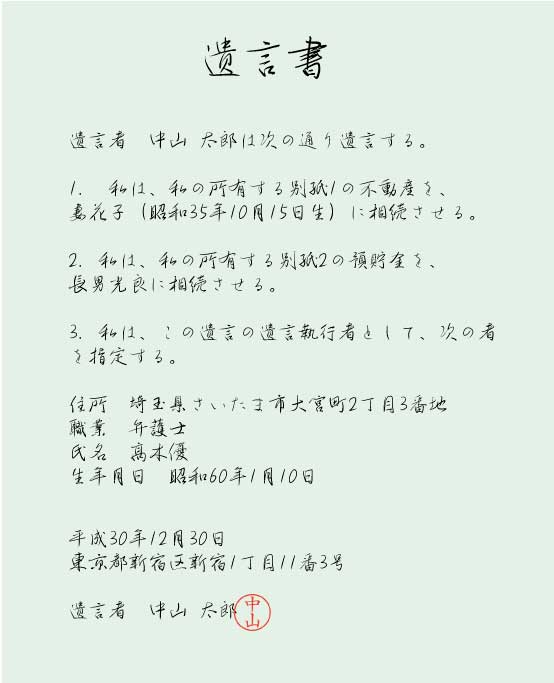 遺言書
遺言者　中山 太郎は次の通り遺言する。
1.　私は、私の所有する別紙1の不動産を、
妻花子（昭和35年10月15日生）に相続させる。
2. 私は、私の所有する別紙2の預貯金を、
長男光良に相続させる。
3. 私は、この遺言の遺言執行者として、次の者
を指定する。
住所　埼玉県さいたま市大宮町2丁目3番地
職業　弁護士
氏名　高木優
生年月日　昭和60年1月10日
平成30年12月30日
東京都新宿区新宿1丁目11番3号
遺言者　中山 太郎
中山